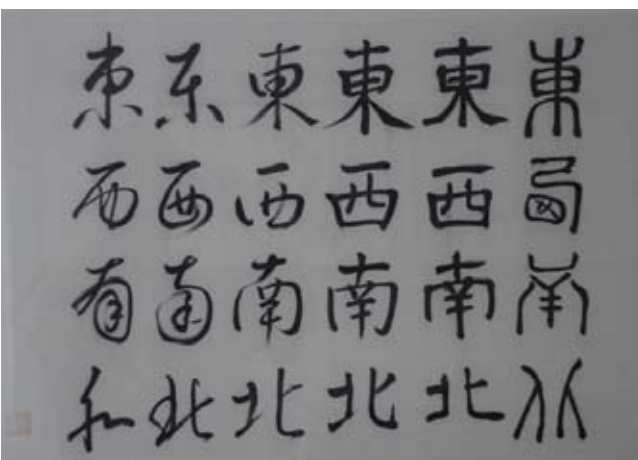 東东東東東東
西西西西西西
南南南南南南
北北北北北北